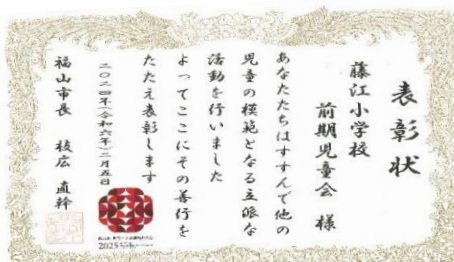 表彰状
藤江小学校
前期児童会 様
あなたたちはすすんで他の
児童の模範となる立派な
活動を行いました
よってここにその善行を
たたえ表彰します
二〇二四年(令和六年)二月五日
福山市長 枝広 直幹
2025